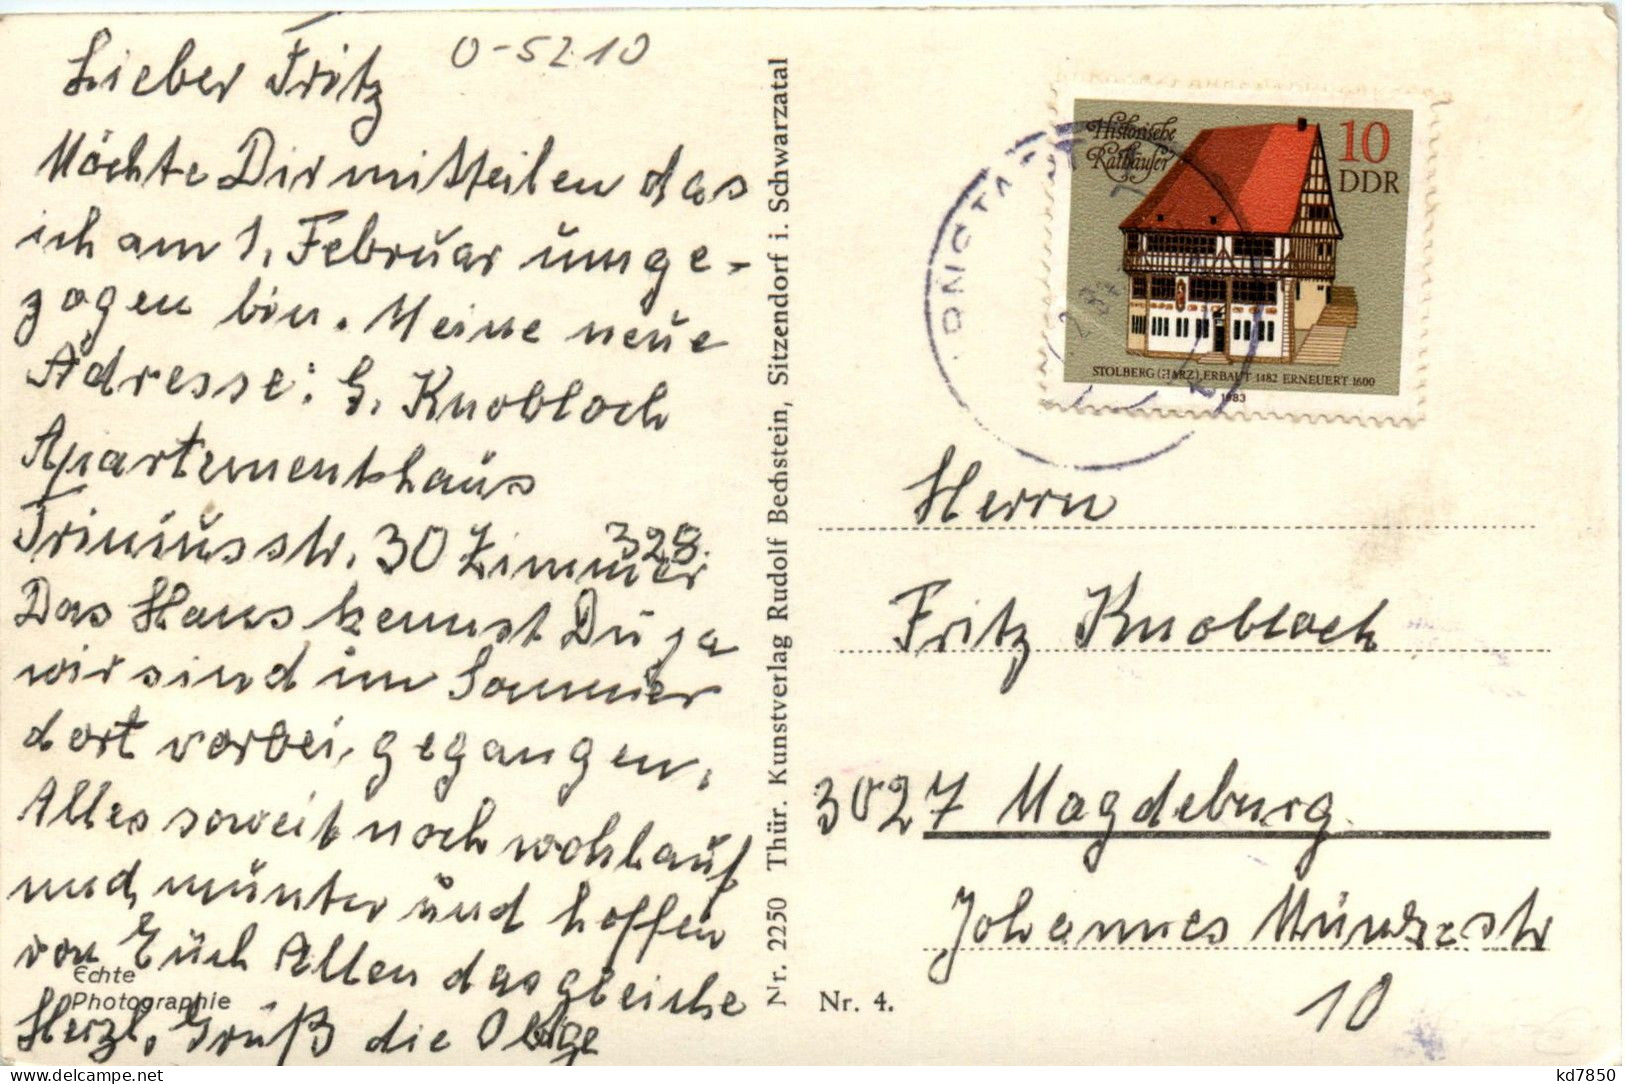 O-5210
Lieber Fritz
Möchte Dir mitteilen das
ich am 1. Februar umge-
zogen bin. Meine neue
Adresse: G. Knobloch
Apartementshaus
Triniusstr. 30 Zimmer 328.
Das Haus kennst Du ja
wir sind im Sommer
dort vorbei gegangen.
Alles soweit noch wohlauf
und munter und hoffen
von Euch Allen das gleiche
Herzl. Gruß die Obige
Echte
Photographie
Nr. 2250 Thür. Kunstverlag Rudolf Bechstein, Sitzendorf i. Schwarzatal
Historische
Rathäuser
10
DDR
STOLBERG (HARZ) ERBAUT 1482 ERNEUERT 1600
1983
Herrn
Fritz Knobloch
3027 Magdeburg
Johannes Müntzestr
10
Nr. 4.
kd7850